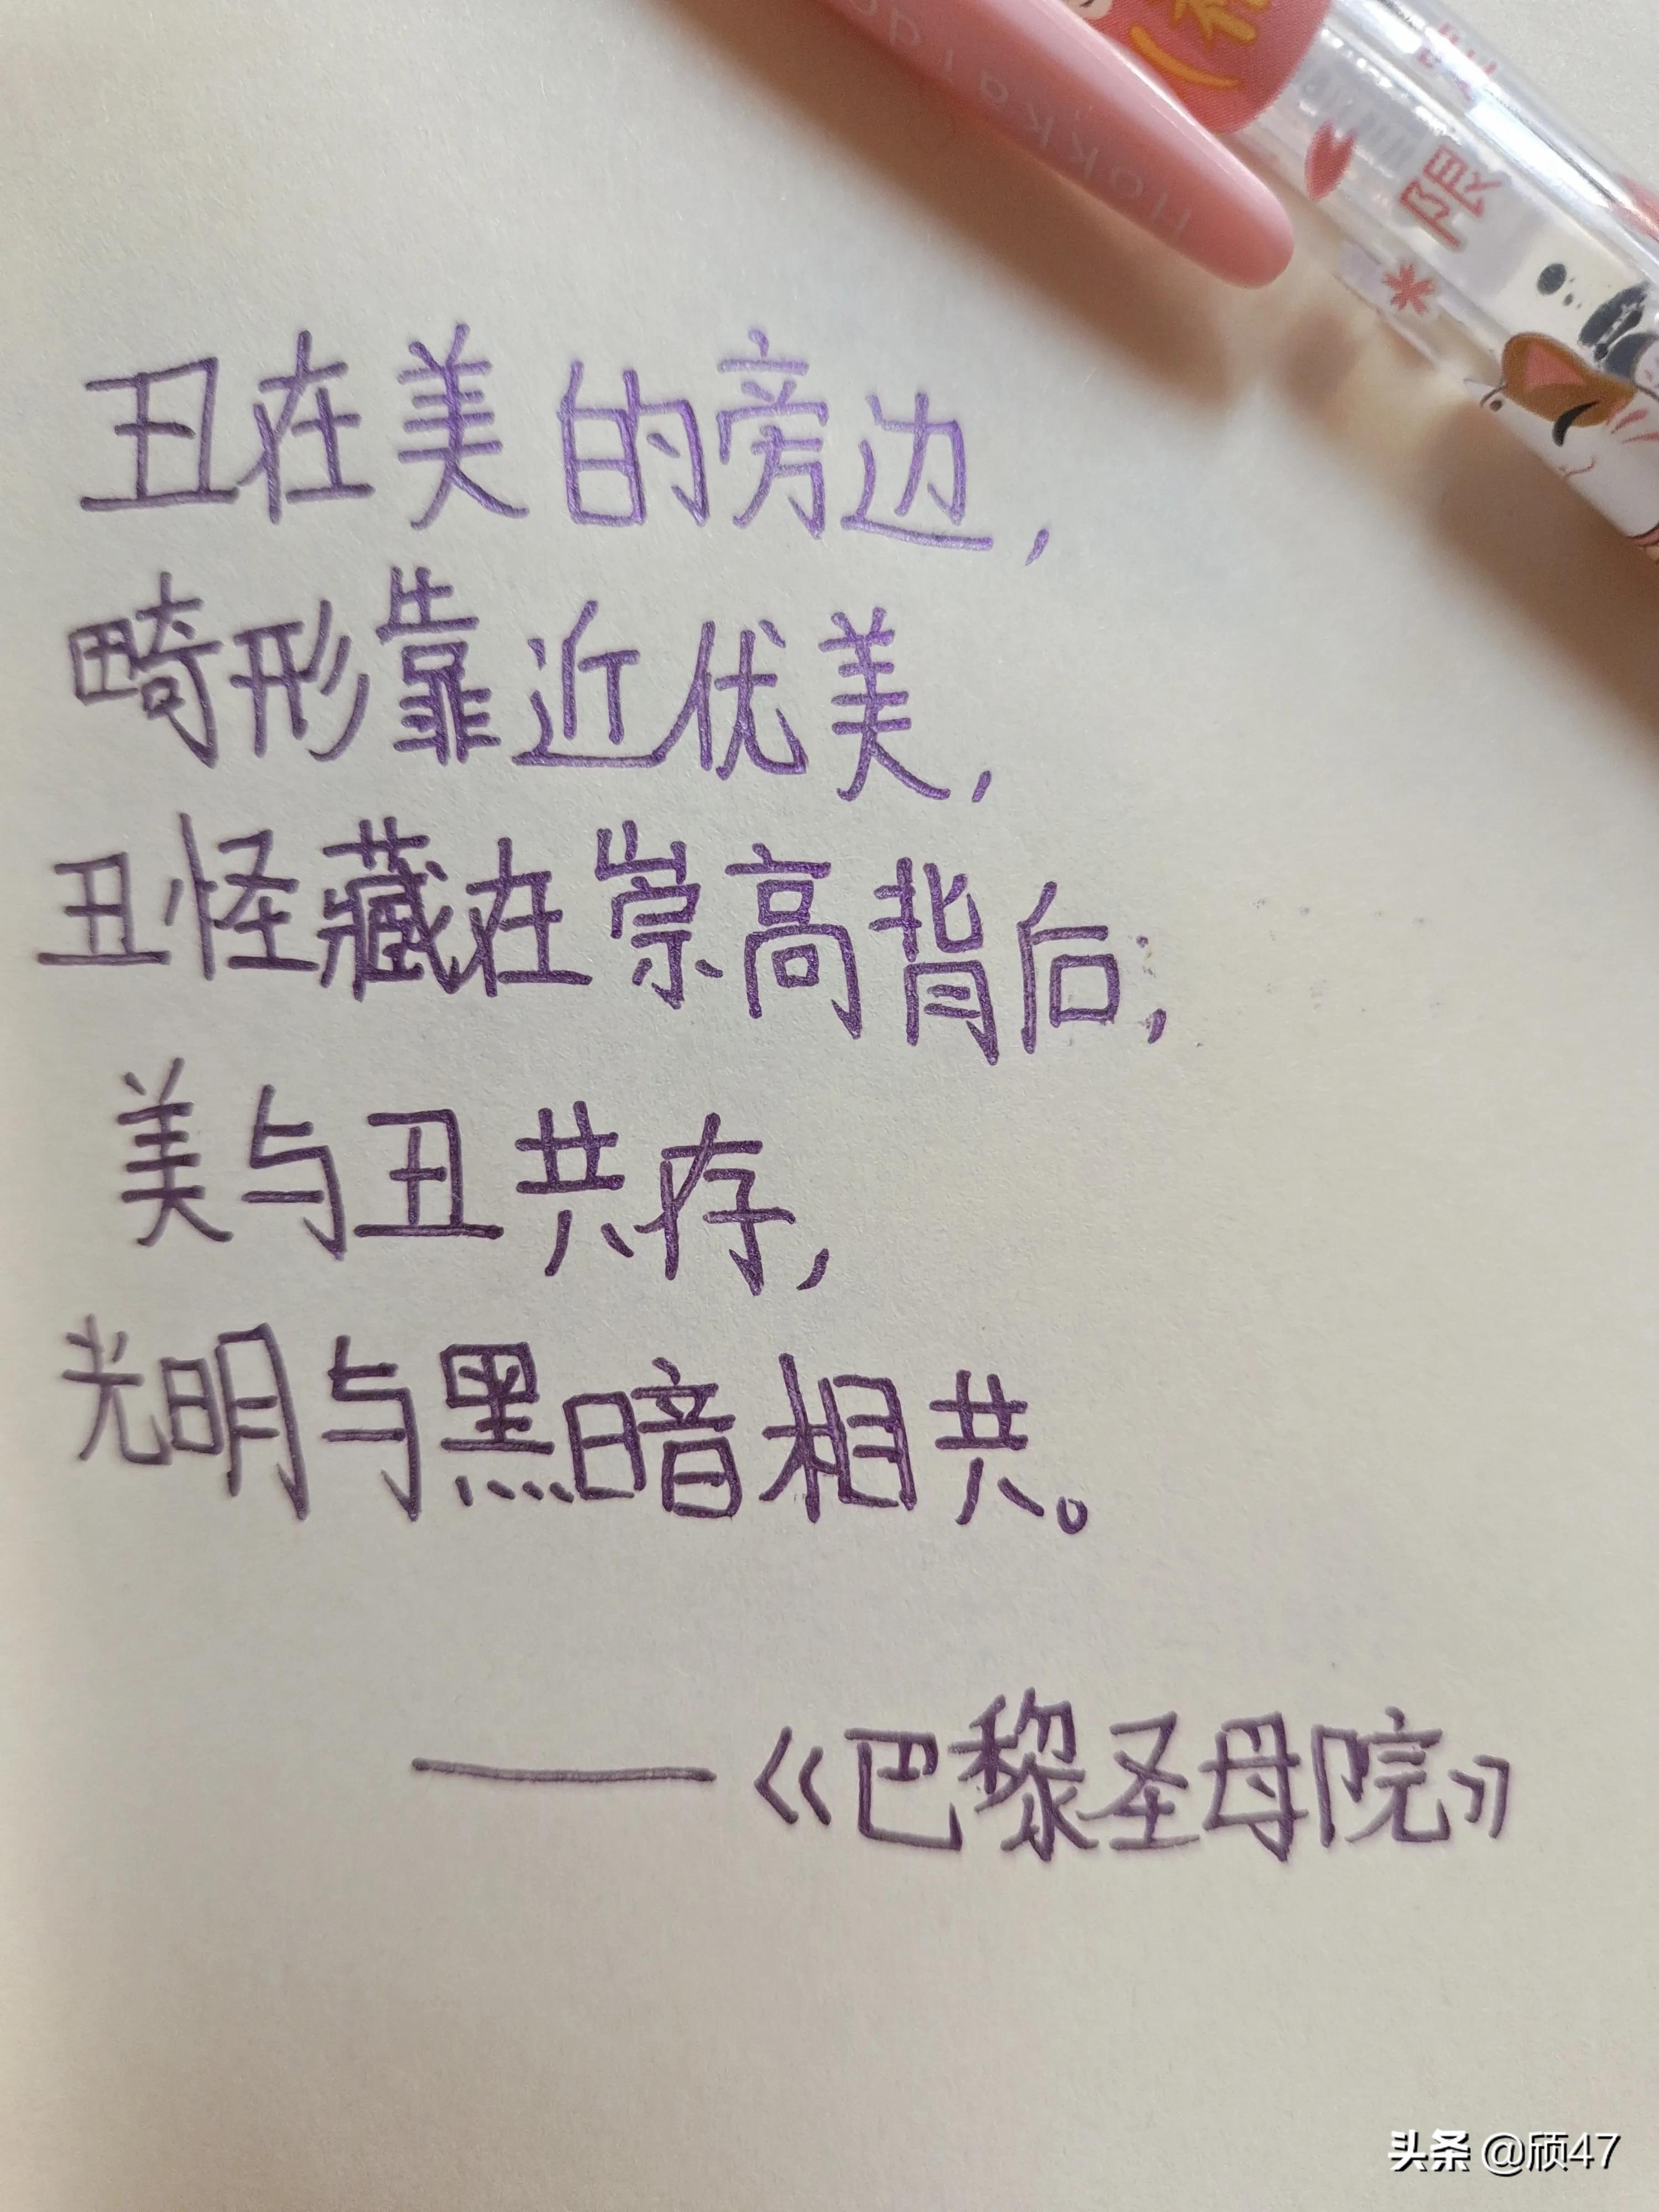 Hokkaido
限
丑在美的旁边,
畸形靠近优美,
丑怪藏在崇高背后;
美与丑共存,
光明与黑暗相共。
——《巴黎圣母院》
头条 @颀47